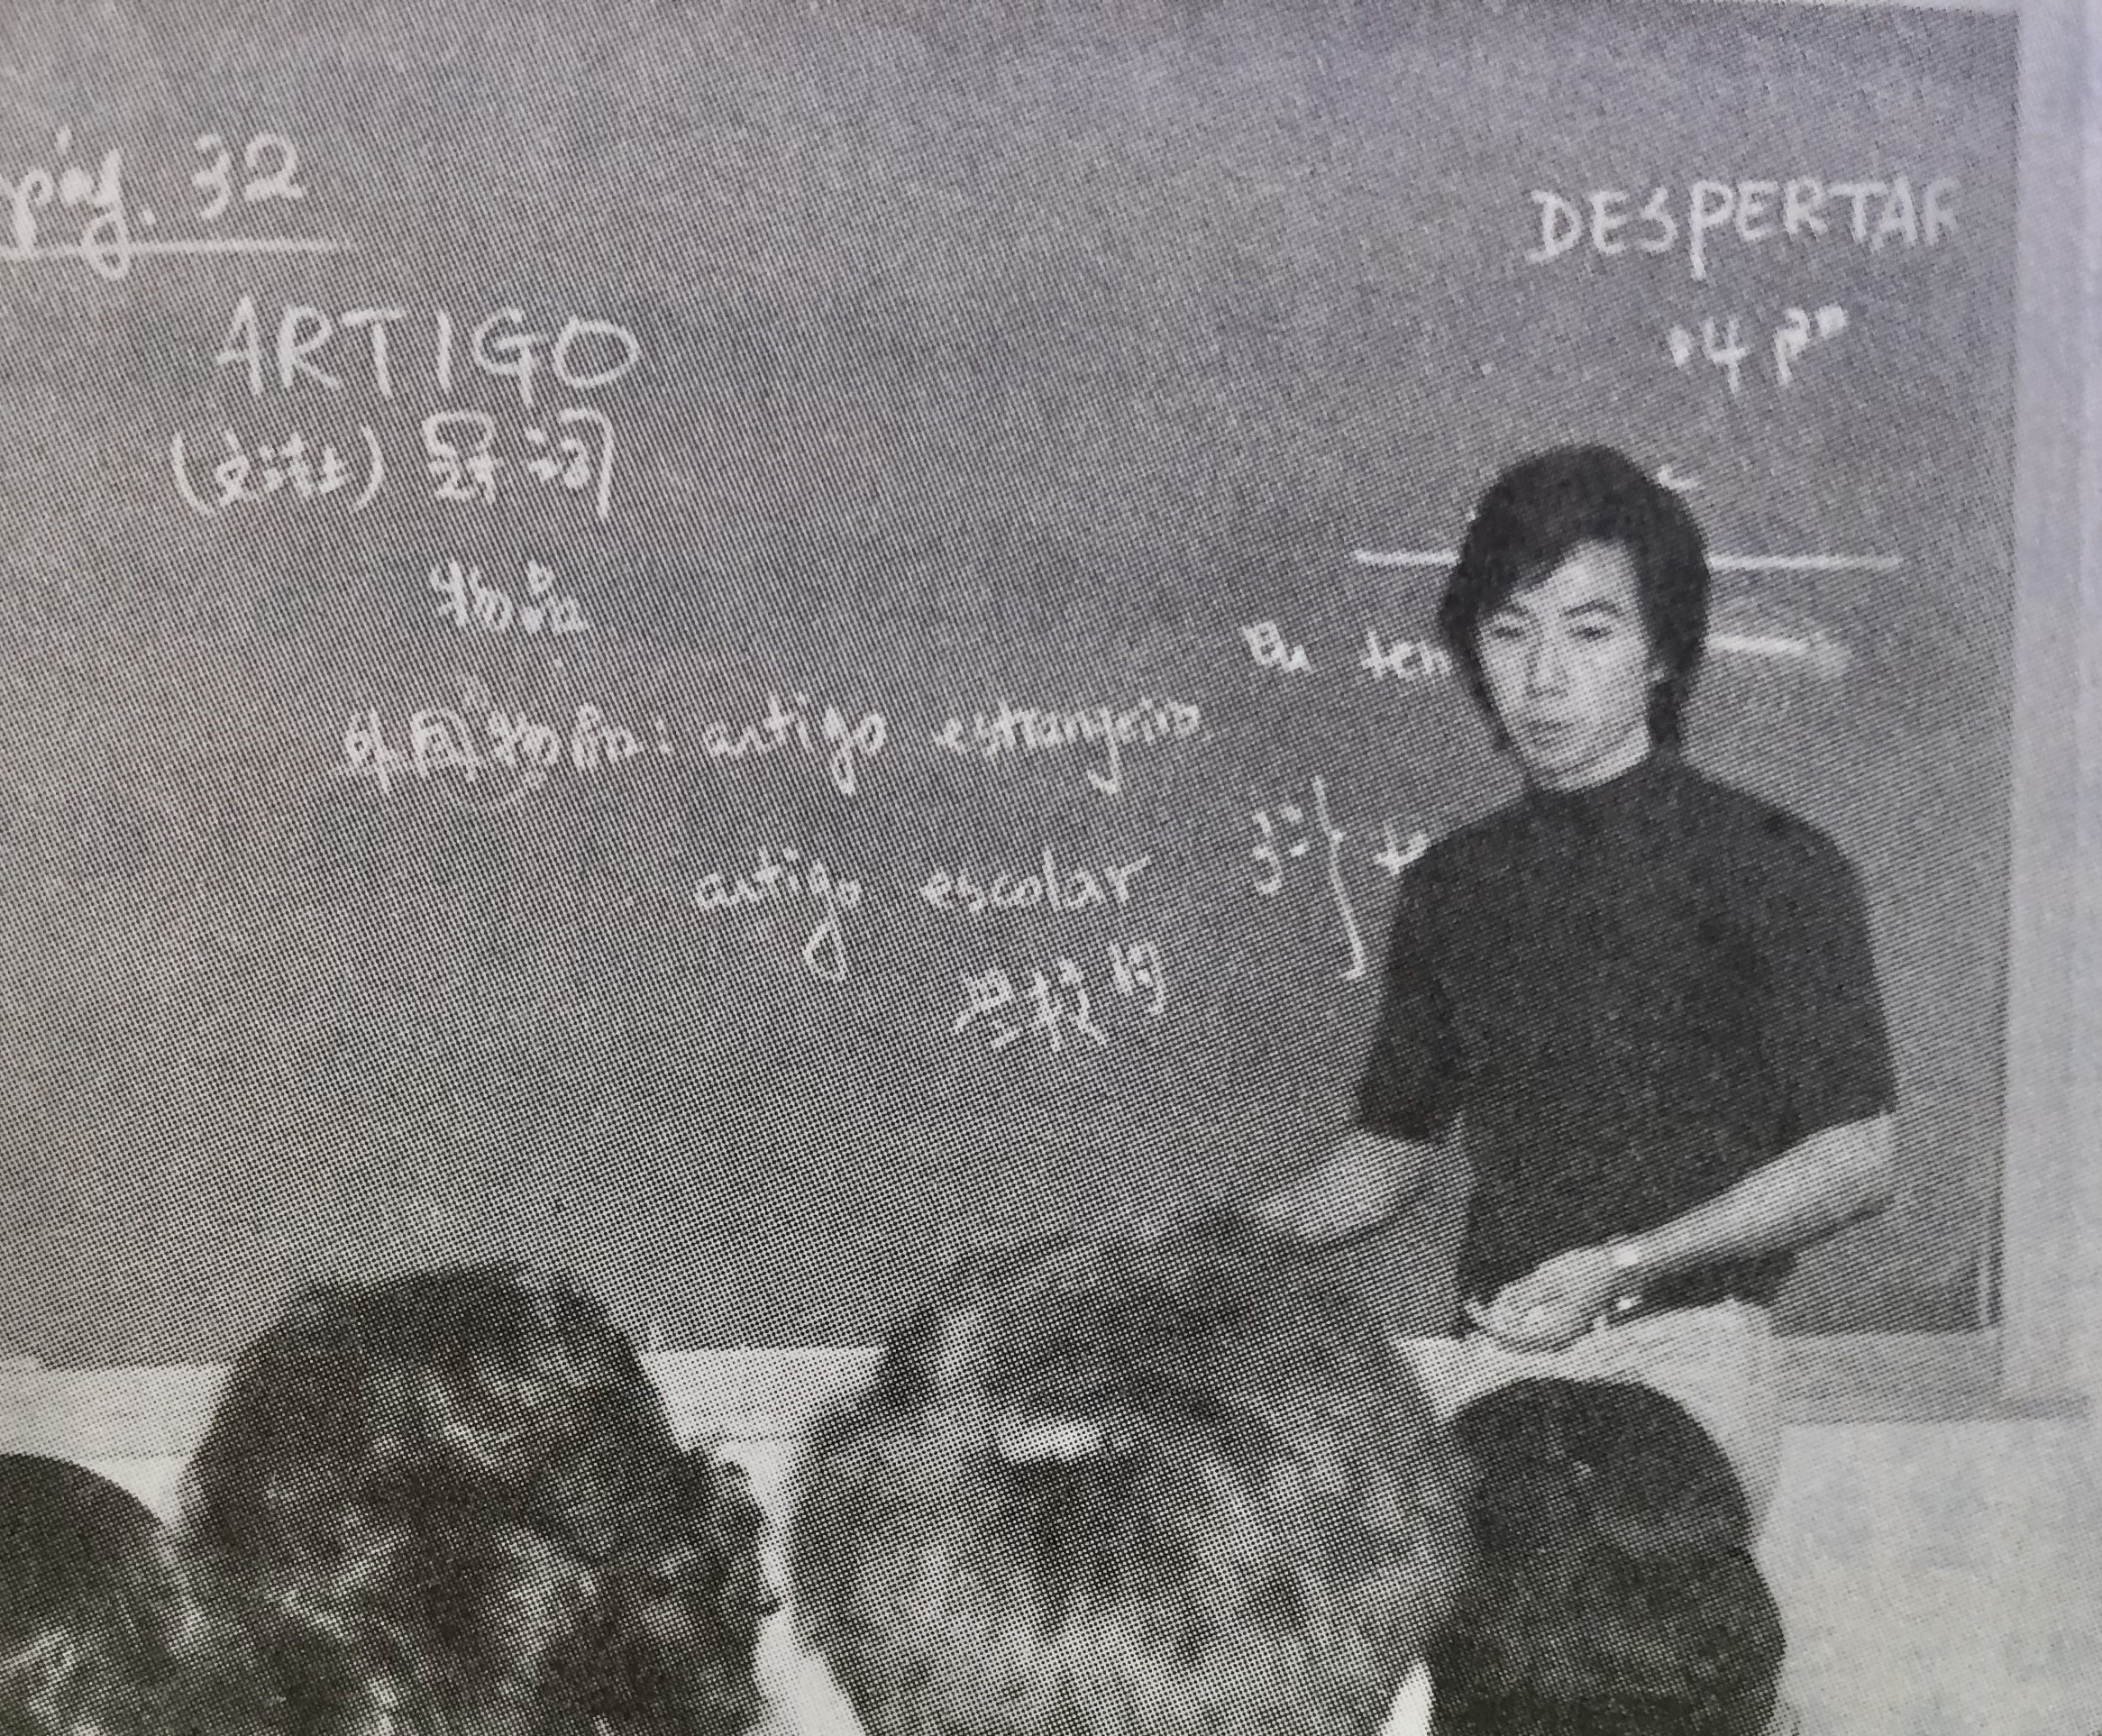 pág. 32
ARTIGO
(文法) 冠词
物品
外国物品: artigo estrangeiro
artigo escolar
学校的
DESPERTAR
Eu ten
te